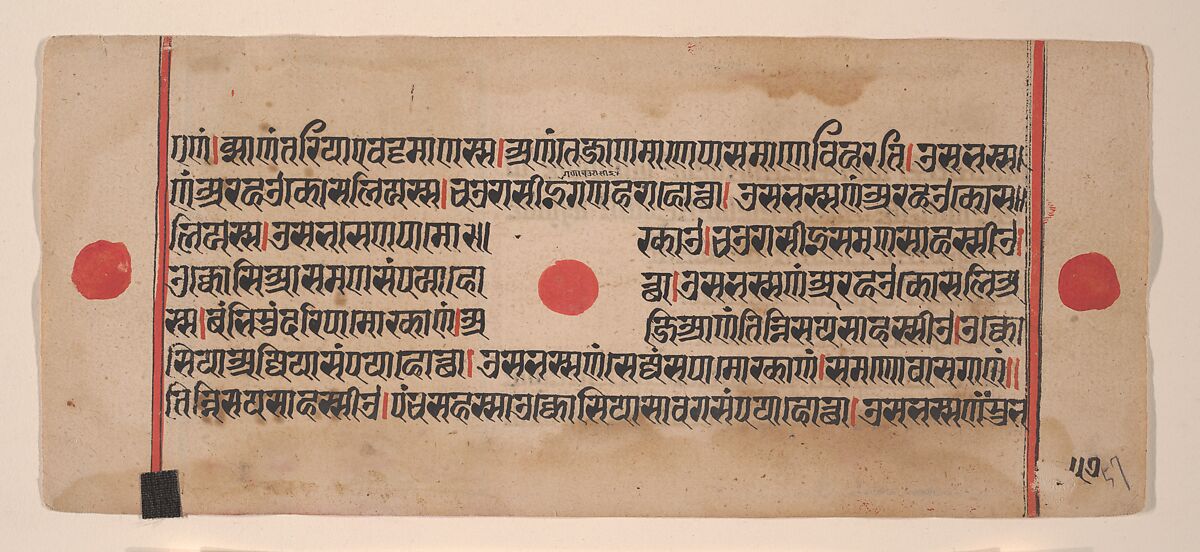 एणं।झाणंतरियाए वट्टमाणस्स।अणंते जाणमाणे पासमाणे विहरति।उसभस्स
णं अरहउ कोसलियस्स।चउरासीइं गणहरा होत्था।उसभस्सणं अरहउ कोस॥
लियस्स।उसभसेणपामो॥ रकाउ।चउरासीइं समणसाहस्सीउ।
उक्कोसिआ समणसंपया हो त्था।उसभस्सणं अरहउ कोसलिअ
स्स।बंभिसुंदरिपामोरकाणं।अ ज्जिआणं तिन्निसयसाहस्सीउ।उक्को
सिया अज्जियासंपया होत्था।उसभस्सणं।सेज्जंसपामोरकाणं।समणोवासगाणं॥
तिन्निसयसाहस्सीउ।पंचसहस्सा उक्कोसिया सावगसंपया होत्था।उसभस्सणं सुभ